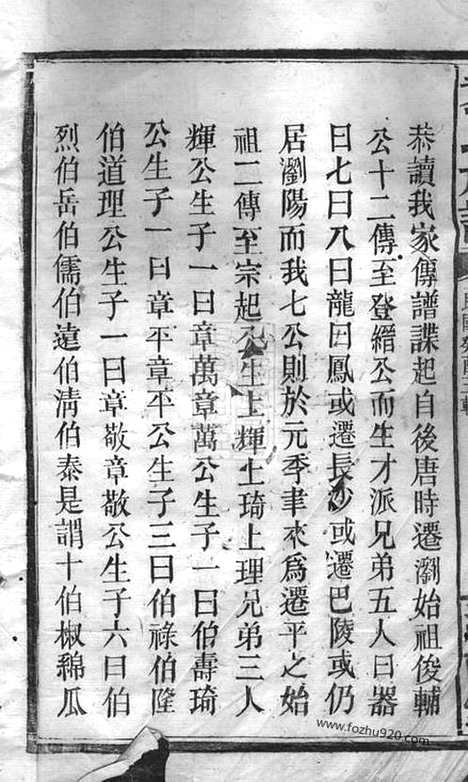 恭讀我家傳譜諜起自後唐時遷瀏始祖俊輔
公十二傳至登縉公而生才派兄弟五人曰器
曰七曰八曰龍曰鳳或遷長沙或遷巴陵或仍
居瀏陽而我七公則於元季聿來為遷平之始
祖二傳至宗起公生上輝上琦上理兄弟三人
輝公生子一曰章萬章萬公生子一曰伯壽琦
公生子一曰章平章平公生子三曰伯祿伯隆
伯道理公生子一曰章敬章敬公生子六曰伯
烈伯岳伯儒伯遠伯淸伯泰是謂十伯椒綿瓜
www.fozhu920.com